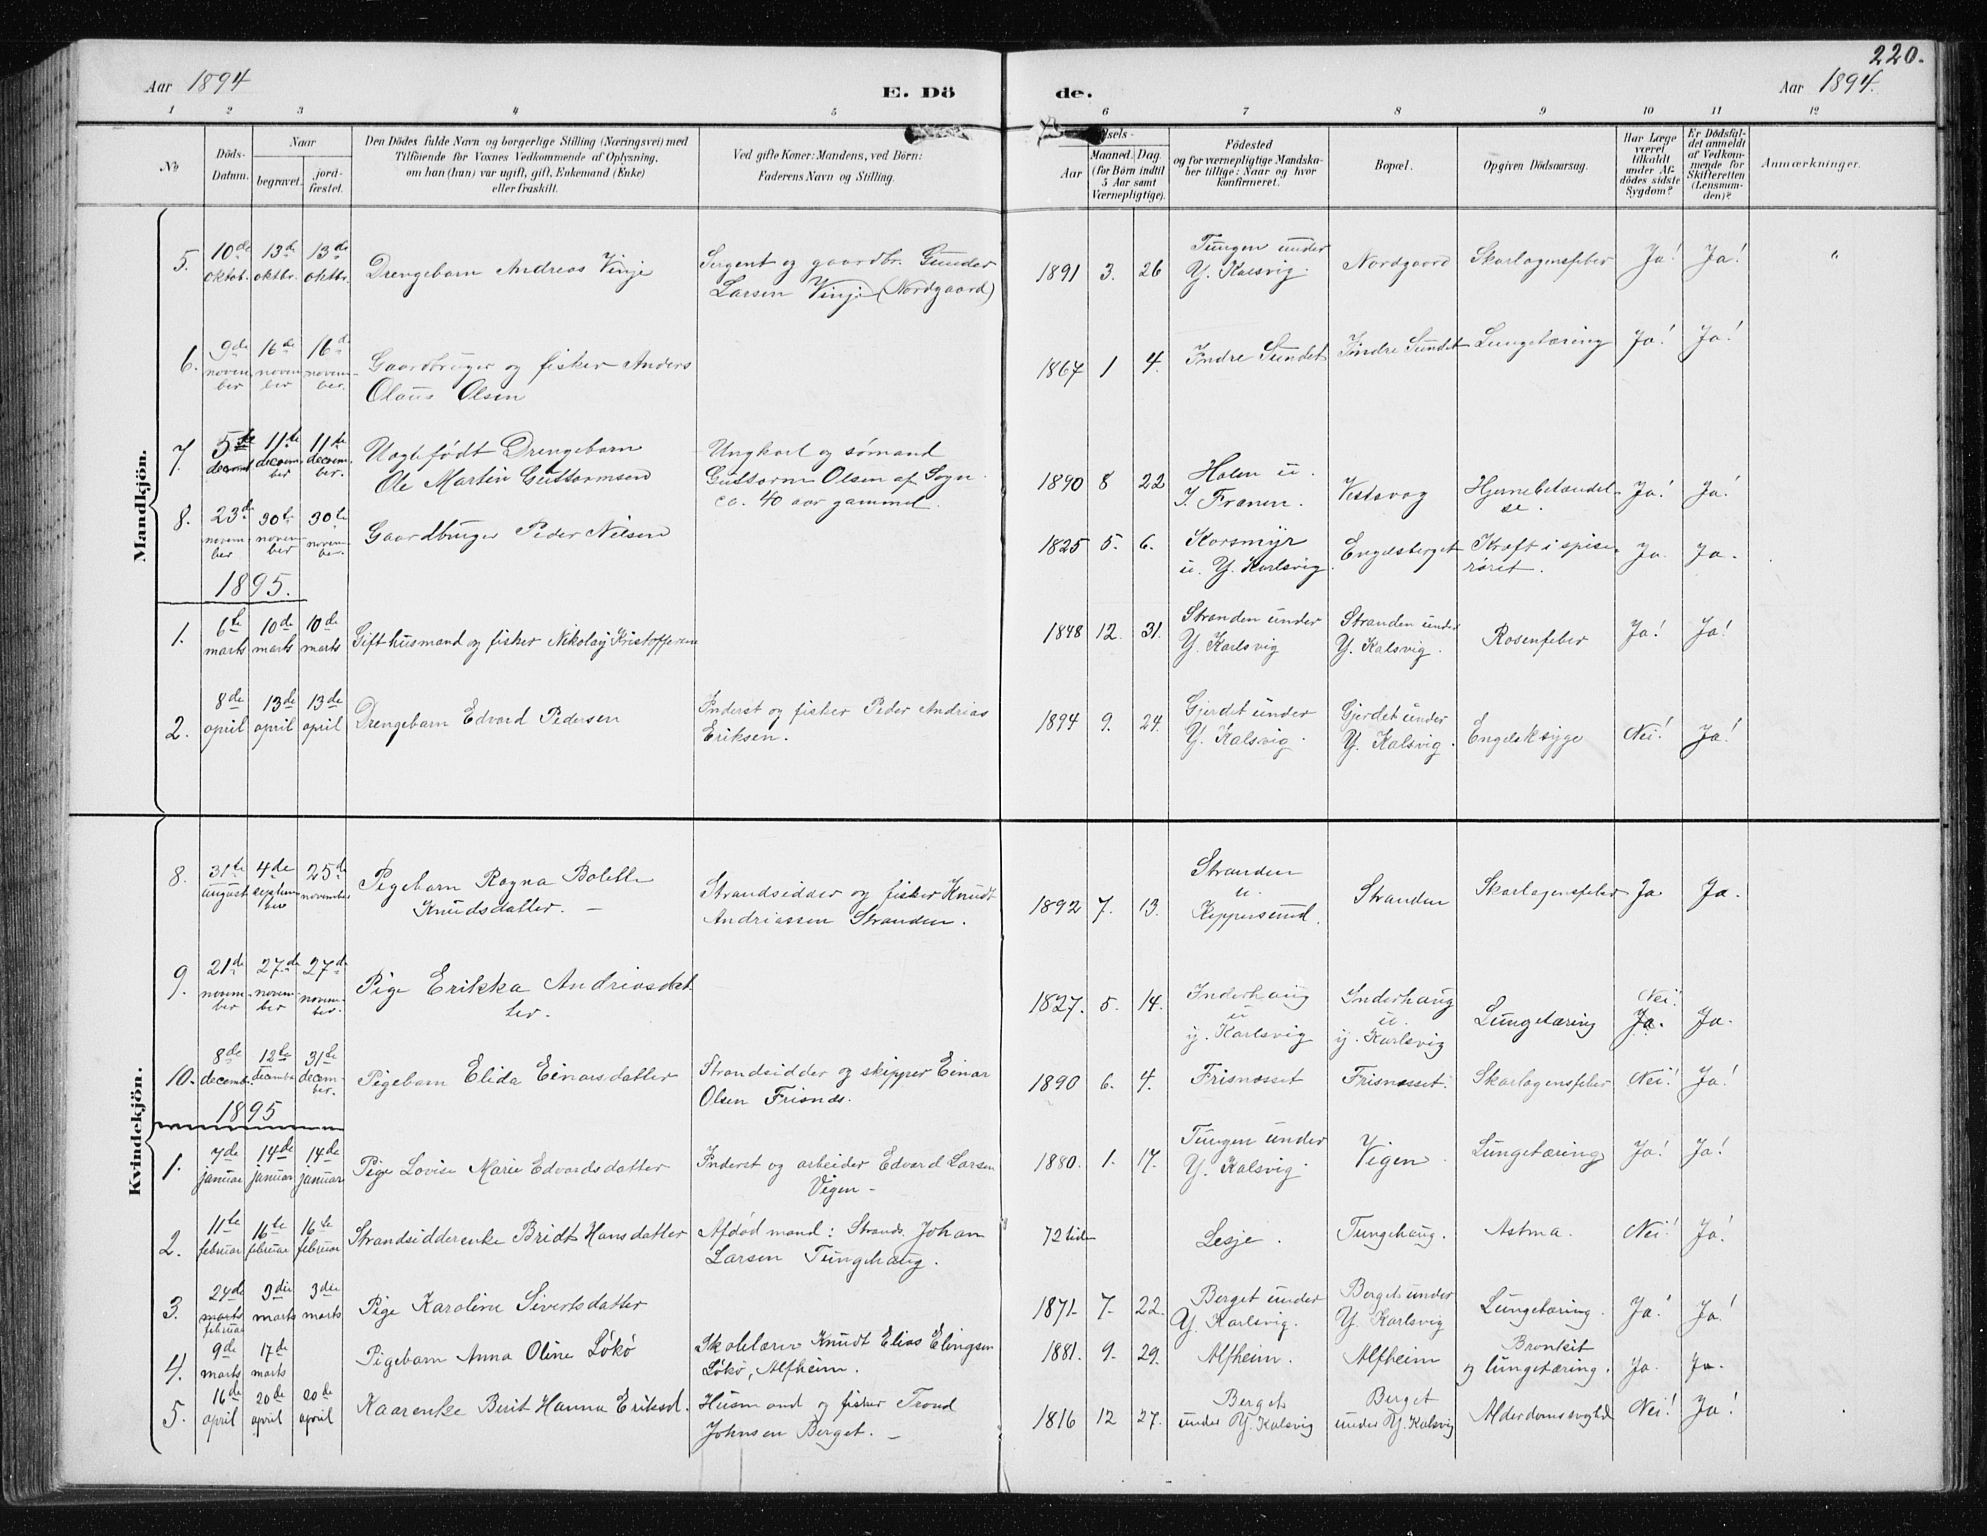 220.
Aar 1894
E. Dö
de.
Aar 1894.
1 2 3 4 5 6 7 8 9 10 11 12
No
Döds-
Datum.
Naar
begravet.
jord-
fæstet.
Den Dödes fulde Navn og borgerlige Stilling (Næringsvei) med
Tilföiende for Voxnes Vedkommende af Oplysning,
om han (hun) var ugift, gift, Enkemand (Enke)
eller fraskilt.
Ved gifte Koner: Mandens, ved Börn:
Faderens Navn og Stilling.
Aar
Maaned. Dag.
(for Börn indtil
5 Aar samt
Værnepligtige).
Födested
og for værnepligtige Mandska-
ber tillige: Naar og hvor
konfirmeret.
Bopæl.
Opgiven Dödsaarsag.
Har Læge
været
tilkaldt
under Af-
dödes sidste
Sygdom?
Er Dödsfal-
det anmeldt
af Vedkom-
mende for
Skifteretten
(Lensman-
den)?
Anmærkninger.
Mandkjön.
5. 10de oktob. 13de oktbr. 13de oktbr. Drengebarn Andreas Vinje Sergent og gaardbr. Gunder
Larsen Vinje (Nordgaard) 1891 3. 26 Tungen under
Y. Kalsvig. Nordgaard Skarlagensfeber Ja! Ja! "
6. 9de novem-
ber 16de novem-
ber 16de novem-
ber. Gaardbruger og fisker Anders
Olaus Olsen 1867 1 4. Indre Sundet Indre Sundet Lungetæring Ja! Ja!
7. 5te decemb 11te decem-
ber 11te decem-
ber. Uægtefødt Drengebarn
Ole Martin Guttormsen Ungkarl og sømand
Guttorm Olsen af Sogn
ca. 40 aar gammel. 1890 8 22 Holen u.
I. Franen. Vestavaag Hjernebetændel-
se. Ja! Ja!
8. 23de novem-
ber 30te novem-
ber 30te novem-
ber. Gaardbruger Peder Nilsen 1825 5. 6. Korsmyr
u. Y. Karlsvig. Engelsberget Kræft i spise-
røret. Ja Ja.
1895.
1. 6te marts 10de marts 10de marts Gift husmand og fisker Nikolay Kristoffersen 1848 12. 31. Stranden under
Y. Karlsvig Stranden under
Y. Kalsvig. Rosenfeber Ja! Ja!
2. 8de april 13de april 13de april Drengebarn Edvard Pedersen Inderst og fisker Peder Andrias
Eriksen. 1894 9. 24. Gjerdet under
Y. Kalsvig. Gjerdet under
Y. Kalsvig. Engelsk syge Nei! Ja!
Kvindekjön.
8. 31te august 4de septem-
ber 25de november Pigebarn Ragna Bolette
Knudsdatter. – Strandsidder og fisker Knudt
Andriassen Stranden. 1892 7. 13. Stranden
u.
Keppersund. Stranden Skarlagensfeber Ja Ja.
9. 21de novem-
ber 27de novem-
ber 27de novem-
ber. Pige Erikka Andriasdat-
ter. 1827. 5. 14. Inderhaug
u
y. Karlsvig Inderhaug
u.
y. Karlsvig Lungetæring Nei!
Ja. Ja.
10. 8de decemb. 12te decembr 31te decem-
ber. Pigebarn Elida Einarsdatter Strandsidder og skipper Einar
Olsen Frisnds. 1890 6. 4. Frisnæsset Frisnæsset. Skarlagensfeber Nei! Ja!
1895
1. 7de januar 14de januar 14de januar Pige Lovise Marie Edvardsdatter Inderst og arbeider Edvard Larsen
Vigen – 1880. 1. 17. Tungen under
Y. Kalsvig. Vigen. Lungetæring Ja! Ja!
2. 11te februar 16te februar 16te februar Strandsidderenke Bridt Hansdatter Afdød mand: Strands. Johan
Larsen Tungehaug. 72 Lesje. Tungehaug. Astma. Nei! Ja!
3. 24de marts
februar 3die marts 3die marts Pige Karoline Sivertsdatter 1871. 7. 22. Berget under
Y. Karlsvig. Berget under
Y. Karlsvig Lungetæring. Ja! Ja!
4. 9de marts 17de marts Pigebarn Anna Oline Løkø Skolelærer Knudt Elias Elingsen
Løkø, Alfheim. 1881. 9. 29. Alfheim. Alfheim Bronkit
og lungetæring. Ja. Ja.
5. 16de april 20de april 20de april Kaarenke Berit Hanna Eriksd. Husmand og fisker Trond
Johnsen Berget. – 1816 12 27. Berget
under Y. Kalsvig Berget
under Y. Kalsvig Alderdomssvaghed Nei! Ja!